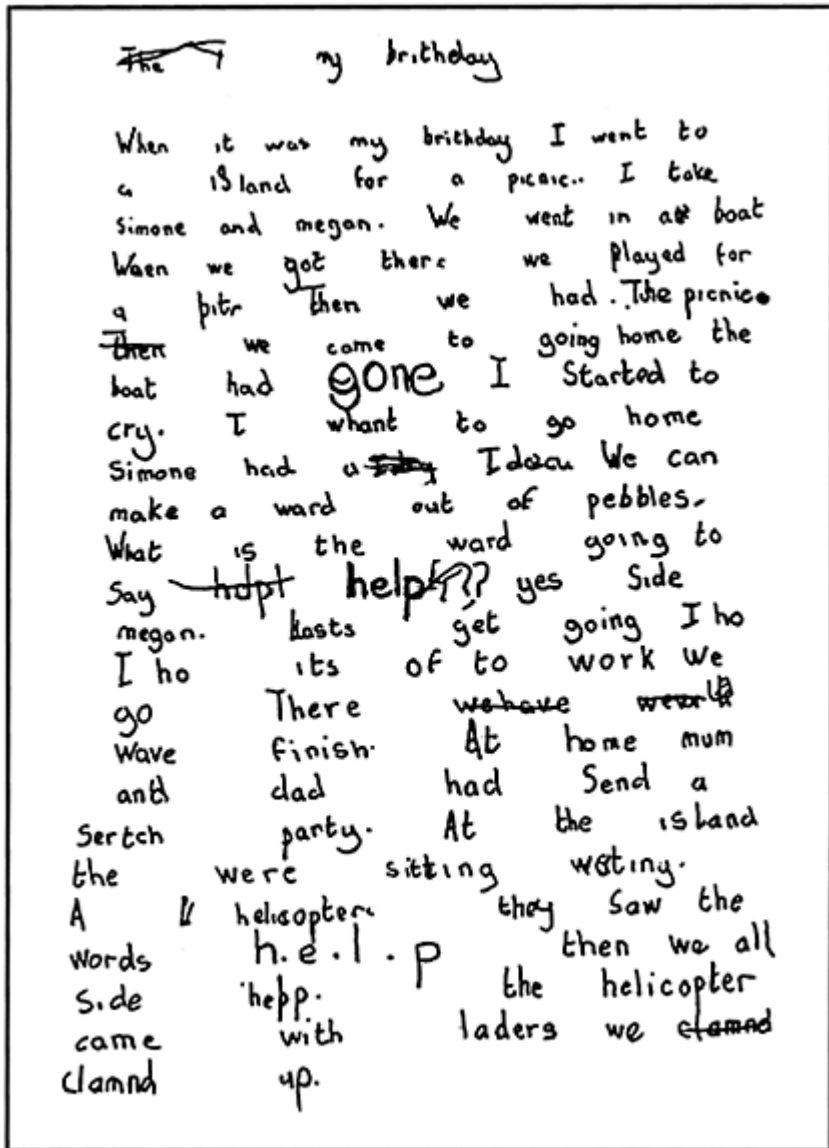 The my brithday
When it was my brithday I went to
a island for a picnic.. I take
Simone and megan. We went in a boat
Waen we got there we played for
a bitr Then we had. The picnic.
Then we come to going home the
boat had gone I Started to
cry. I whant to go home
Simone had a Idacu We can
make a ward out of pebbles.
What is the ward going to
Say help??? yes Side
megan. Lasts get going I ho
I ho its of to work We
go There we have
Wave finish. At home mum
and dad had Send a
Sertch party. At the island
the were sitting wating.
A helicopter they Saw the
words h.e.l.p then we all
Side help. the helicopter
came with laders we clamnd
Clamnd up.